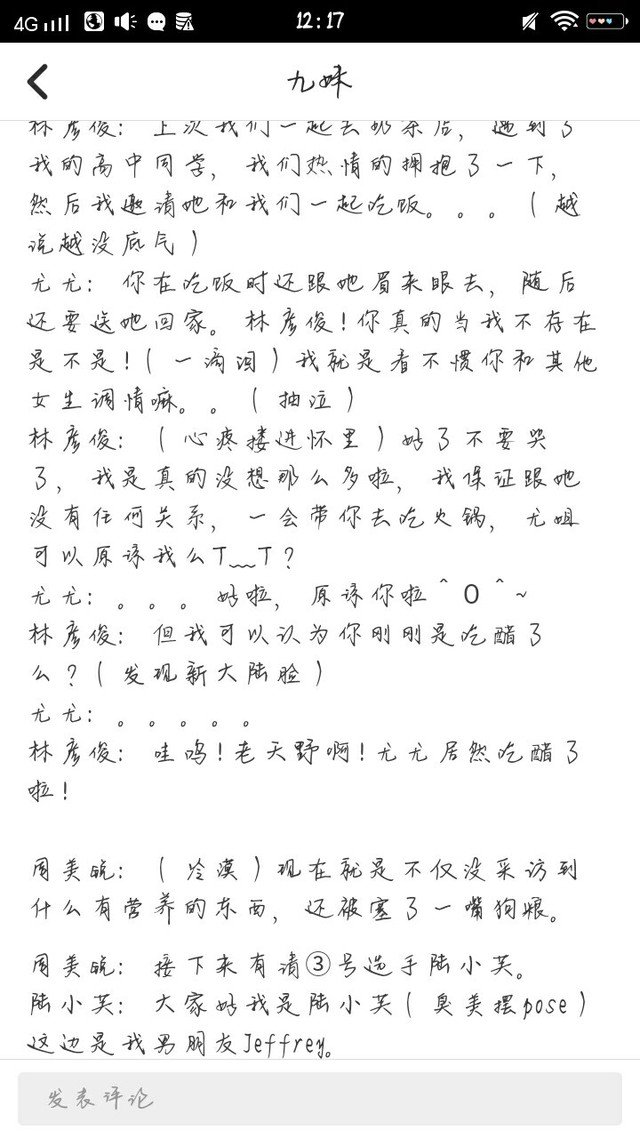 4G 12:17
九妹
林彦俊：上次我们一起去奶茶店，遇到了
我的高中同学，我们热情的拥抱了一下，
然后我邀请她和我们一起吃饭。。。（越
说越没底气）
尤尤：你在吃饭时还跟她眉来眼去，随后
还要送她回家。林彦俊！你真的当我不存在
是不是！（一滴泪）我就是看不惯你和其他
女生调情嘛。。（抽泣）
林彦俊：（心疼搂进怀里）好了不要哭
了，我是真的没想那么多啦，我保证跟她
没有任何关系，一会带你去吃火锅，尤姐
可以原谅我么T﹏T？
尤尤：。。。好啦，原谅你啦＾O＾~
林彦俊：但我可以认为你刚刚是吃醋了
么？（发现新大陆脸）
尤尤：。。。。。
林彦俊：哇呜！老天野啊！尤尤居然吃醋了
啦！
周美皖：（冷漠）现在就是不仅没采访到
什么有营养的东西，还被塞了一嘴狗粮。
周美皖：接下来有请③号选手陆小芙。
陆小芙：大家好我是陆小芙（臭美摆pose）
这边是我男朋友Jeffrey。
发表评论